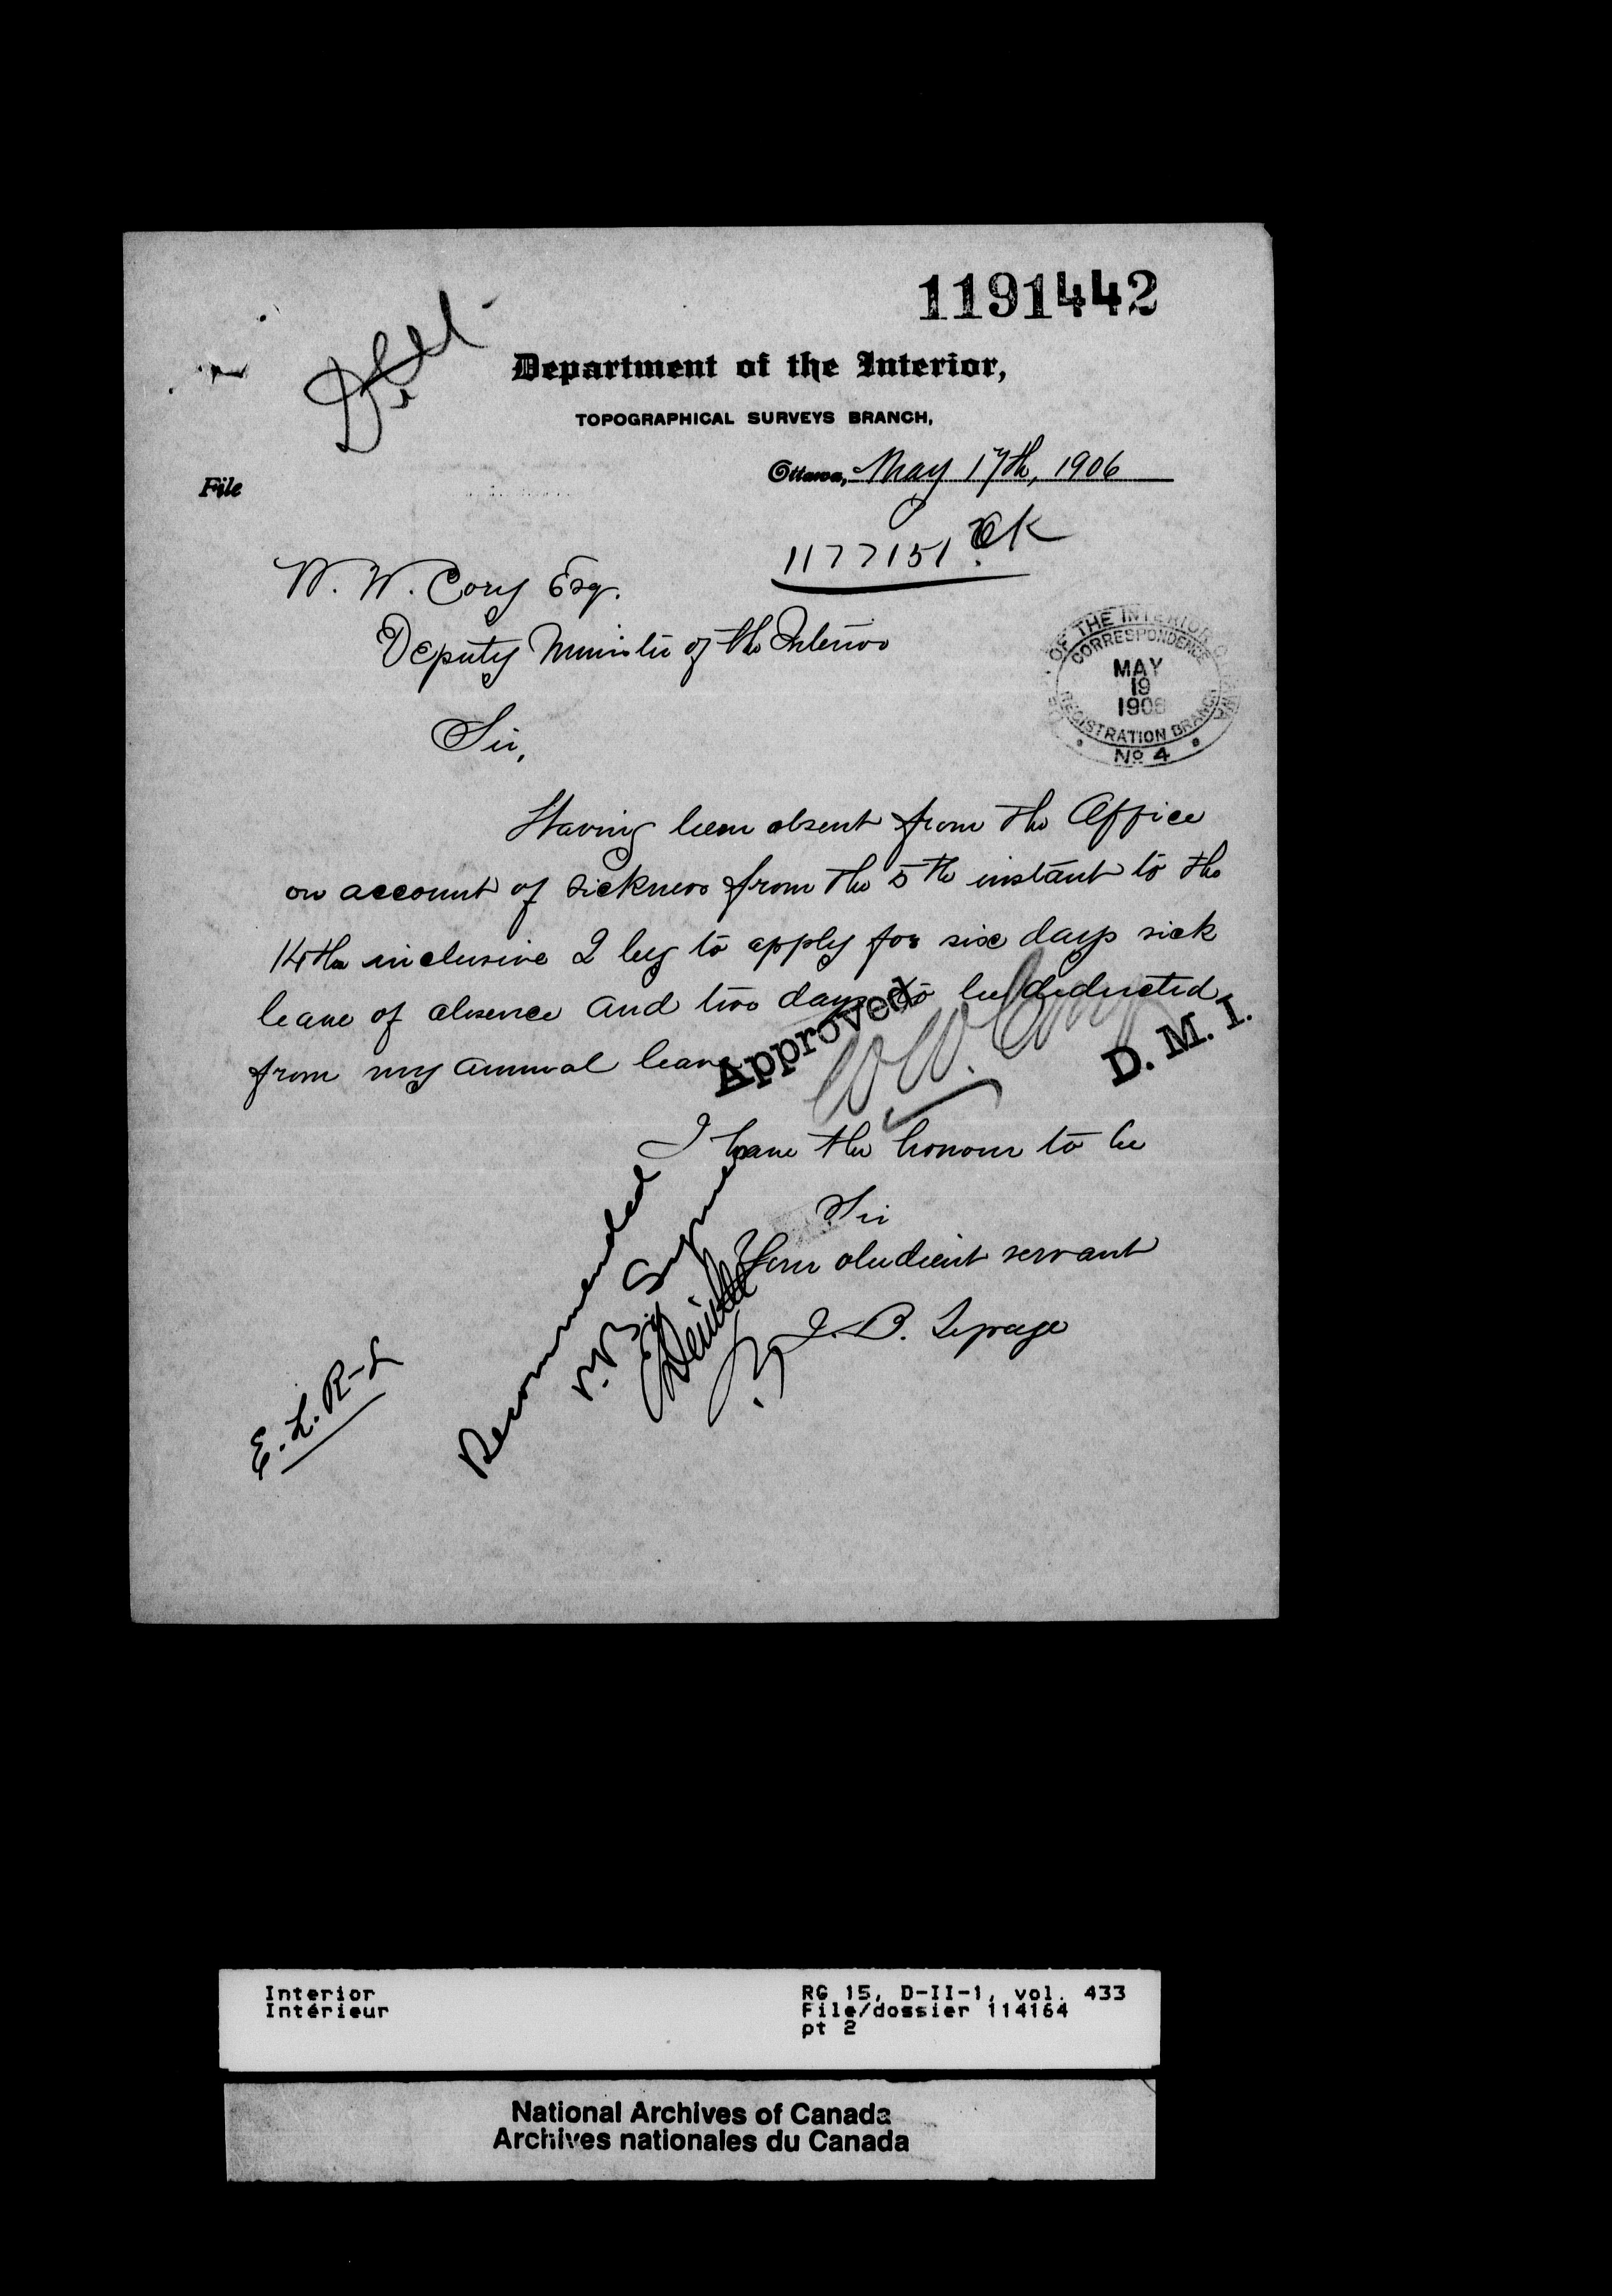 1191442
Department of the Interior,
TOPOGRAPHICAL SURVEYS BRANCH,
Ottawa, May 17th, 1906
File
1177151 OK
W. W. Cory Esq.
Deputy Minister of the Interior
OF THE INTERIOR
CORRESPONDENCE
MAY
19
1906
REGISTRATION BRANCH
No 4
Sir,
Having been absent from the Office
on account of sickness from the 5th instant to the
14th inclusive I beg to apply for six days sick
leave of absence and two days to be deducted
from my annual leave
Approved
W. W. Cory
D. M. I.
I have the honour to be
Sir
Your obedient servant
J. B. Lepage
Recommended
P. B. Symes
E Deville
E. L. R-
Interior
Intérieur
RG 15, D-II-1, vol. 433
File/dossier 114164
pt 2
National Archives of Canada
Archives nationales du Canada